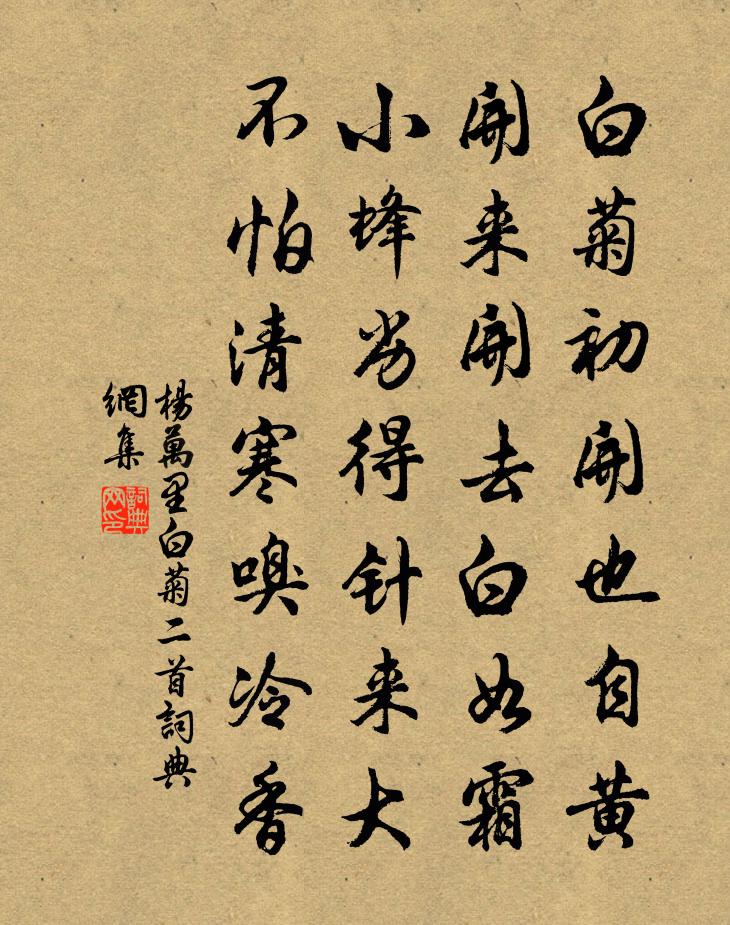 白菊初開也自黄
開来開去白如霜
小蜂劣得针来大
不怕清寒嗅冷香
楊萬里白菊二首詞典
網集
詞典
网印